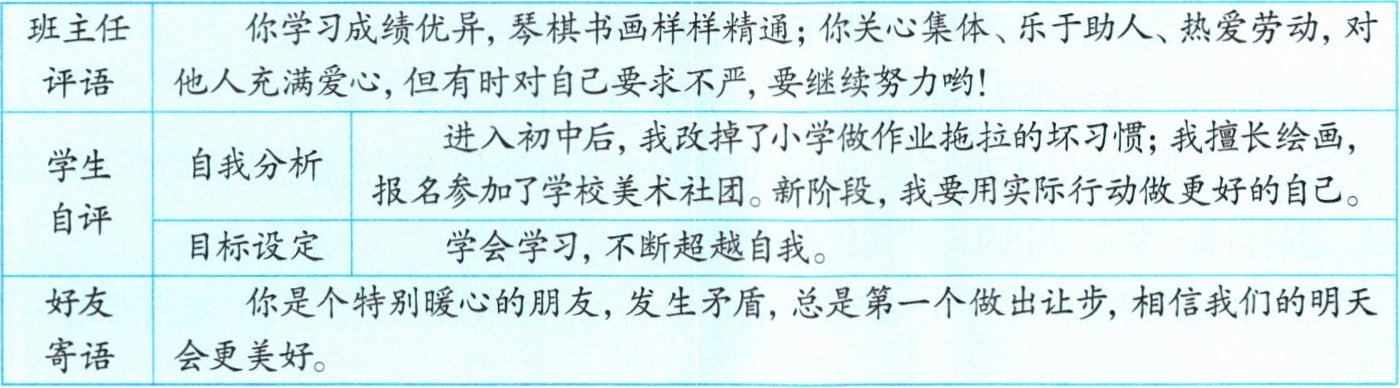 班主任
评语
你学习成绩优异,琴棋书画样样精通;你关心集体、乐于助人、热爱劳动,对
他人充满爱心,但有时对自己要求不严,要继续努力哟!
学生
自评
自我分析
进入初中后,我改掉了小学做作业拖拉的坏习惯;我擅长绘画,
报名参加了学校美术社团。新阶段,我要用实际行动做更好的自己。
目标设定
学会学习,不断超越自我。
好友
寄语
你是个特别暖心的朋友,发生矛盾,总是第一个做出让步,相信我们的明天
会更美好。